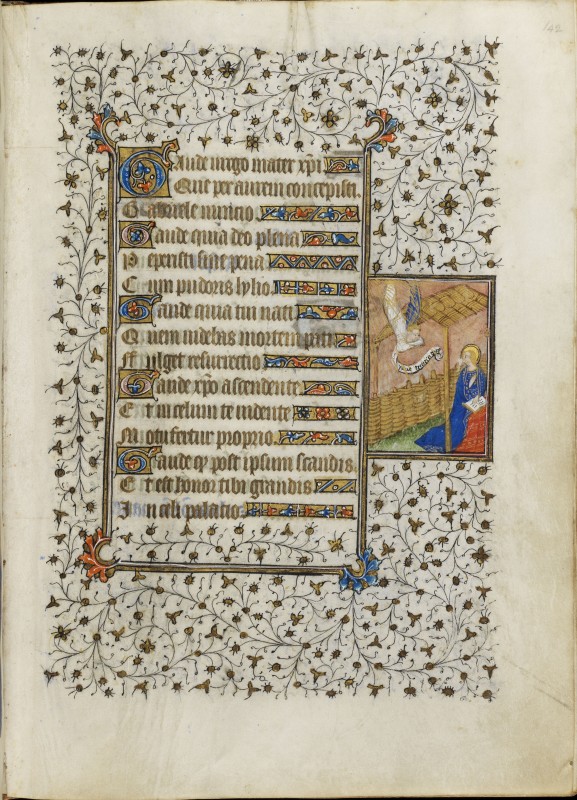 142
Gaude virgo mater xpi
Que per aurem concepisti
Gabriele nuncio
Gaude quia deo plena
Peperisti sine pena
Cum pudoris lylio
Gaude quia tui nati
Quem videbas mortem pati
Fulget resurrectio
Gaude xpo ascendente
Et in celum te vidente
Motu fertur proprio
Gaude q post ipsum scandis
Et est honor tibi grandis
In celi palatio